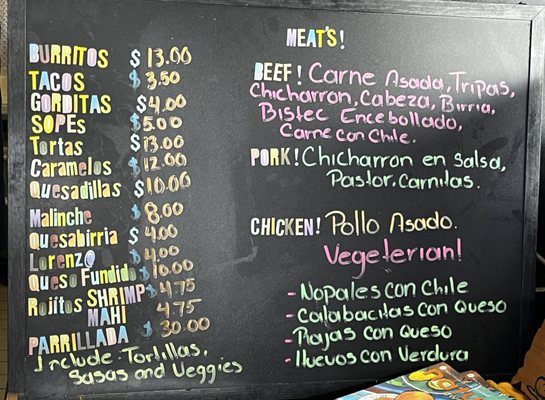 BURRITOS $13.00
TACOS $3.50
GORDITAS $4.00
SOPEs $5.00
Tortas $13.00
Caramelos $12.00
Quesadillas $10.00
Malinche $8.00
Quesabirria $4.00
Lorenzo $4.00
Queso Fundido $10.00
Rojitos SHRIMP $4.75
MAHI 4.75
PARRILLADA $30.00
Include: Tortillas,
Salsas and Veggies
MEAT'S!
BEEF! Carne Asada, Tripas,
Chicharron, Cabeza, Birria,
Bistec Encebollado,
Carne con Chile.
PORK! Chicharron en Salsa,
Pastor, Carnitas.
CHICKEN! Pollo Asado.
Vegeterian!
- Nopales con Chile
- Calabacitas con Queso
- Rajas con Queso
- Huevos con Verdura